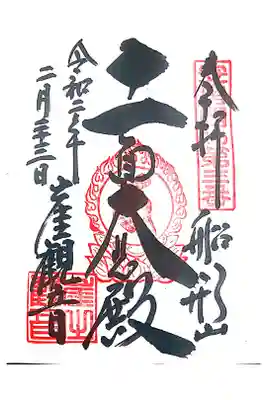 奉拝
船形山
十一面大悲殿
崖観音
令和二年
二月二十三日